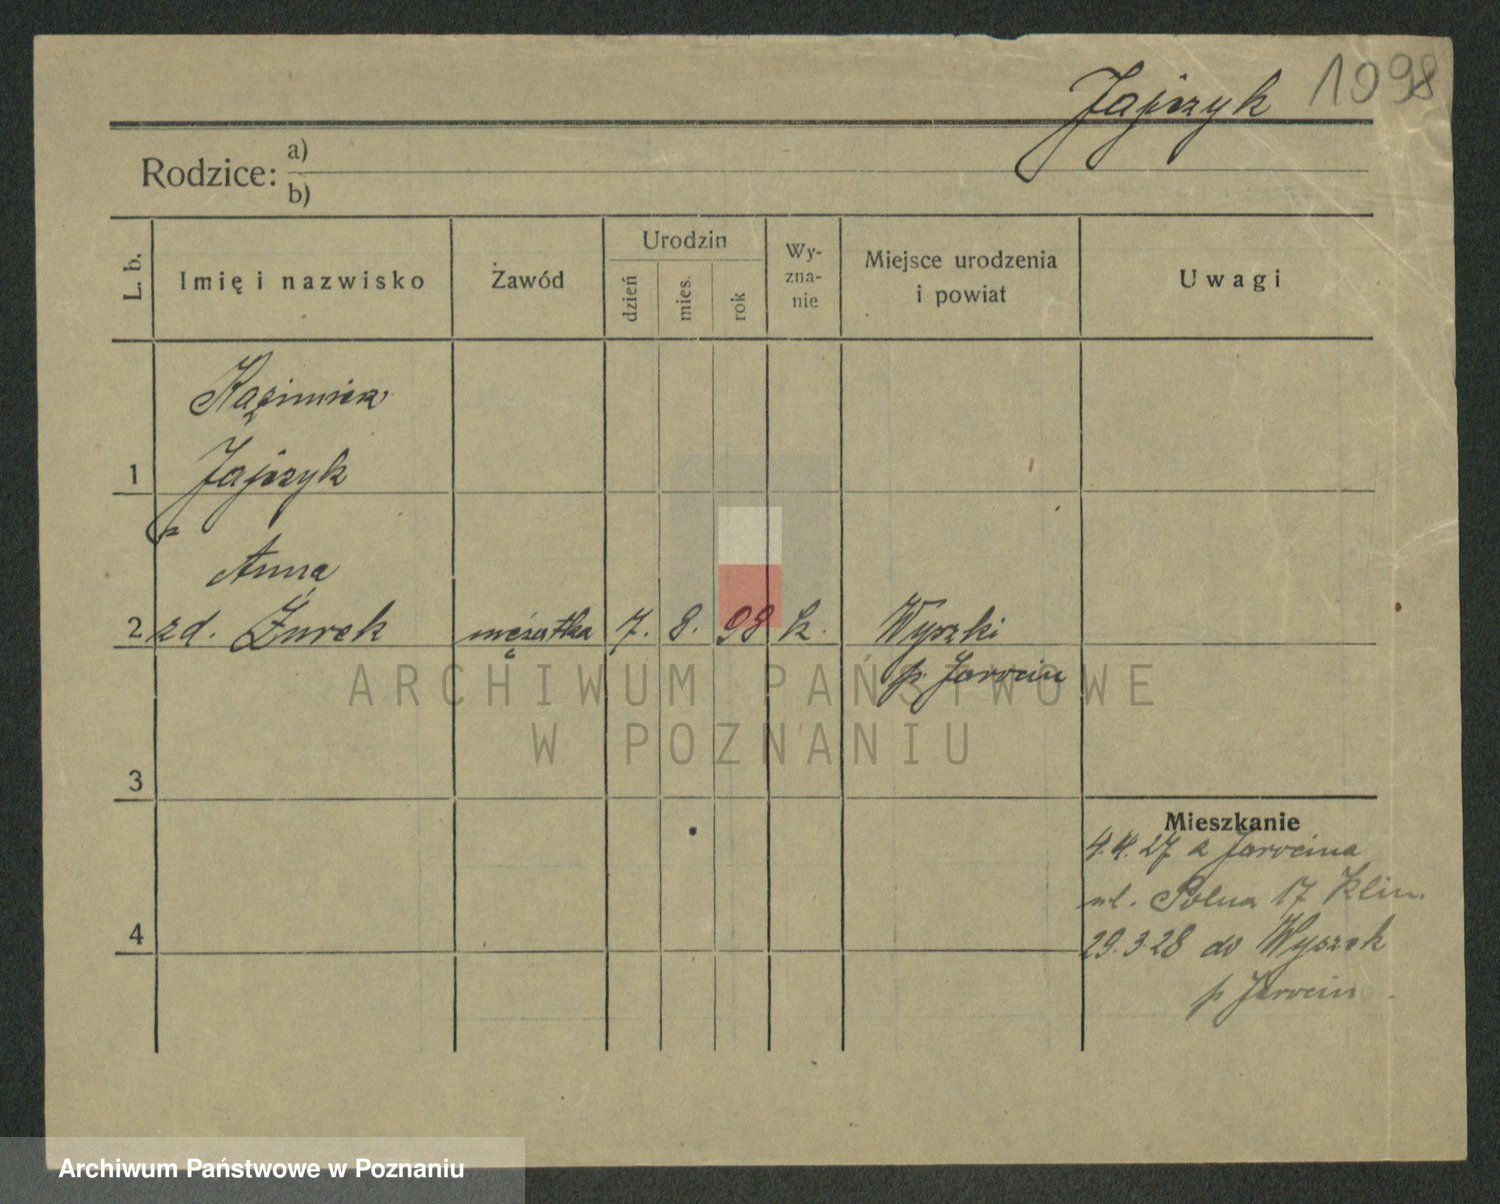 Jajczyk 1098
Rodzice: a)
b)
L. b. Imię i nazwisko Żawód Urodzin dzień mies. rok Wy-zna-nie Miejsce urodzenia i powiat Uwagi
Kazimierz
1 Jajczyk
Anna
2 zd. Żurek mężatka 7. 8. 98 k. Wyszki
p. Jarocin
ARCHIWUM PAŃSTWOWE
W POZNANIU
3
Mieszkanie
4.4.27 z Jarocina
ul. Polna 17 Klim.
4
29.3.28 do Wyszek
p Jarocin
Archiwum Państwowe w Poznaniu